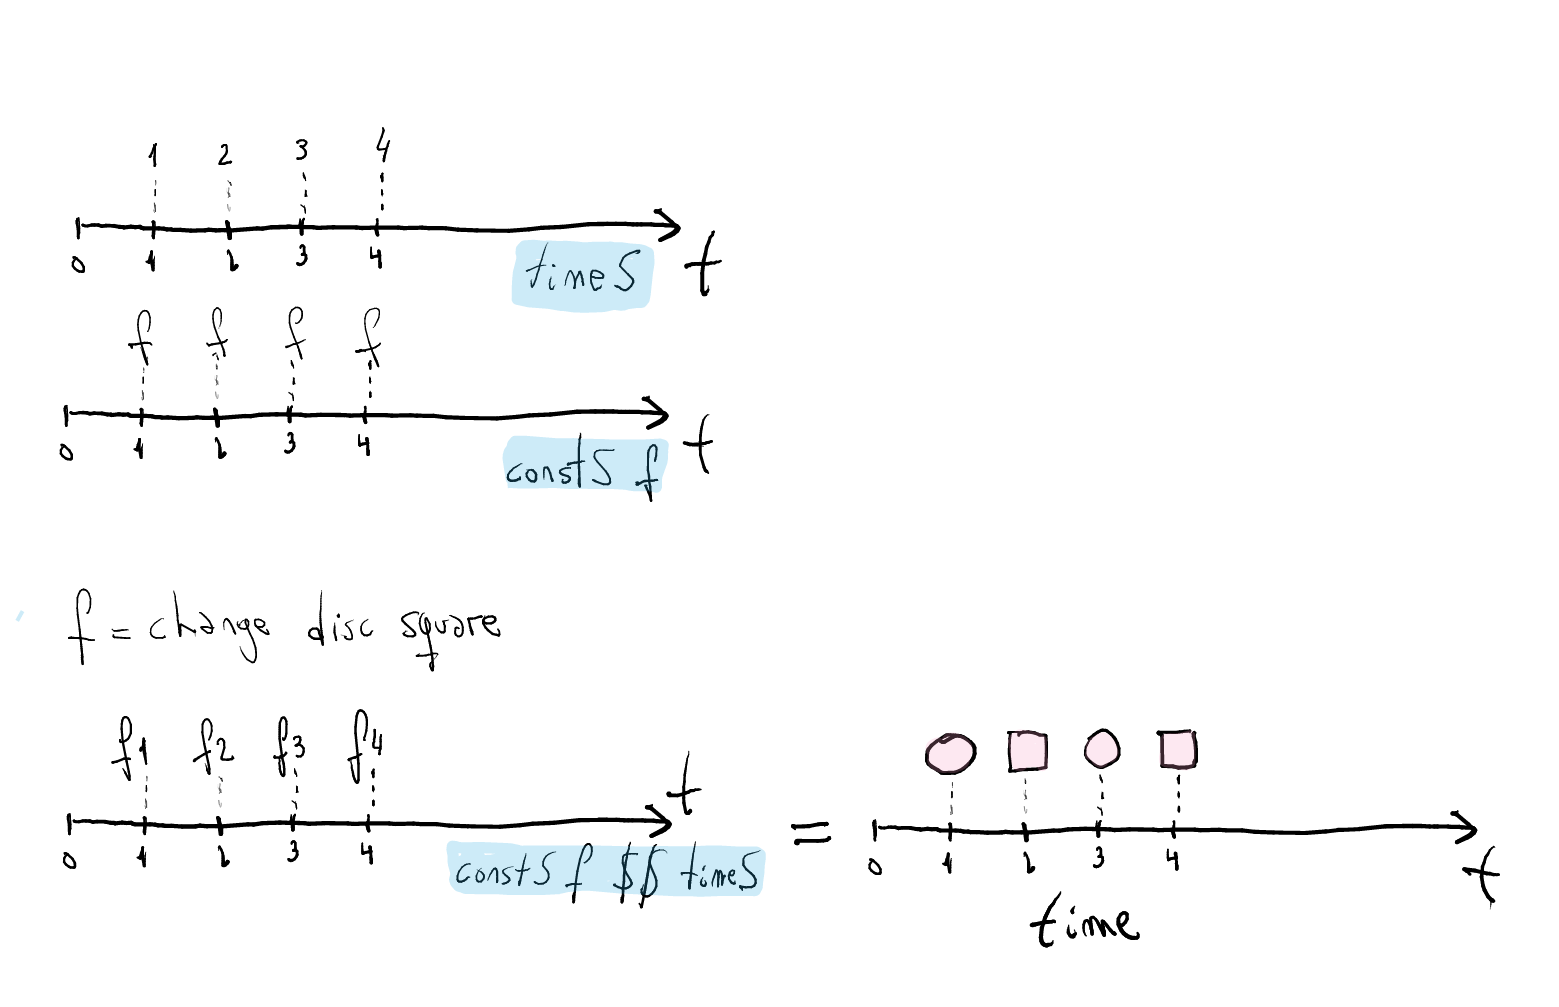 1 2 3 4
0 1 2 3 4
timeS t
f f f f
0 1 2 3 4
constS f t
f = change disc square
f1 f2 f3 f4 t
0 1 2 3 4
constS f $$ timeS
=
0 1 2 3 4 t
time